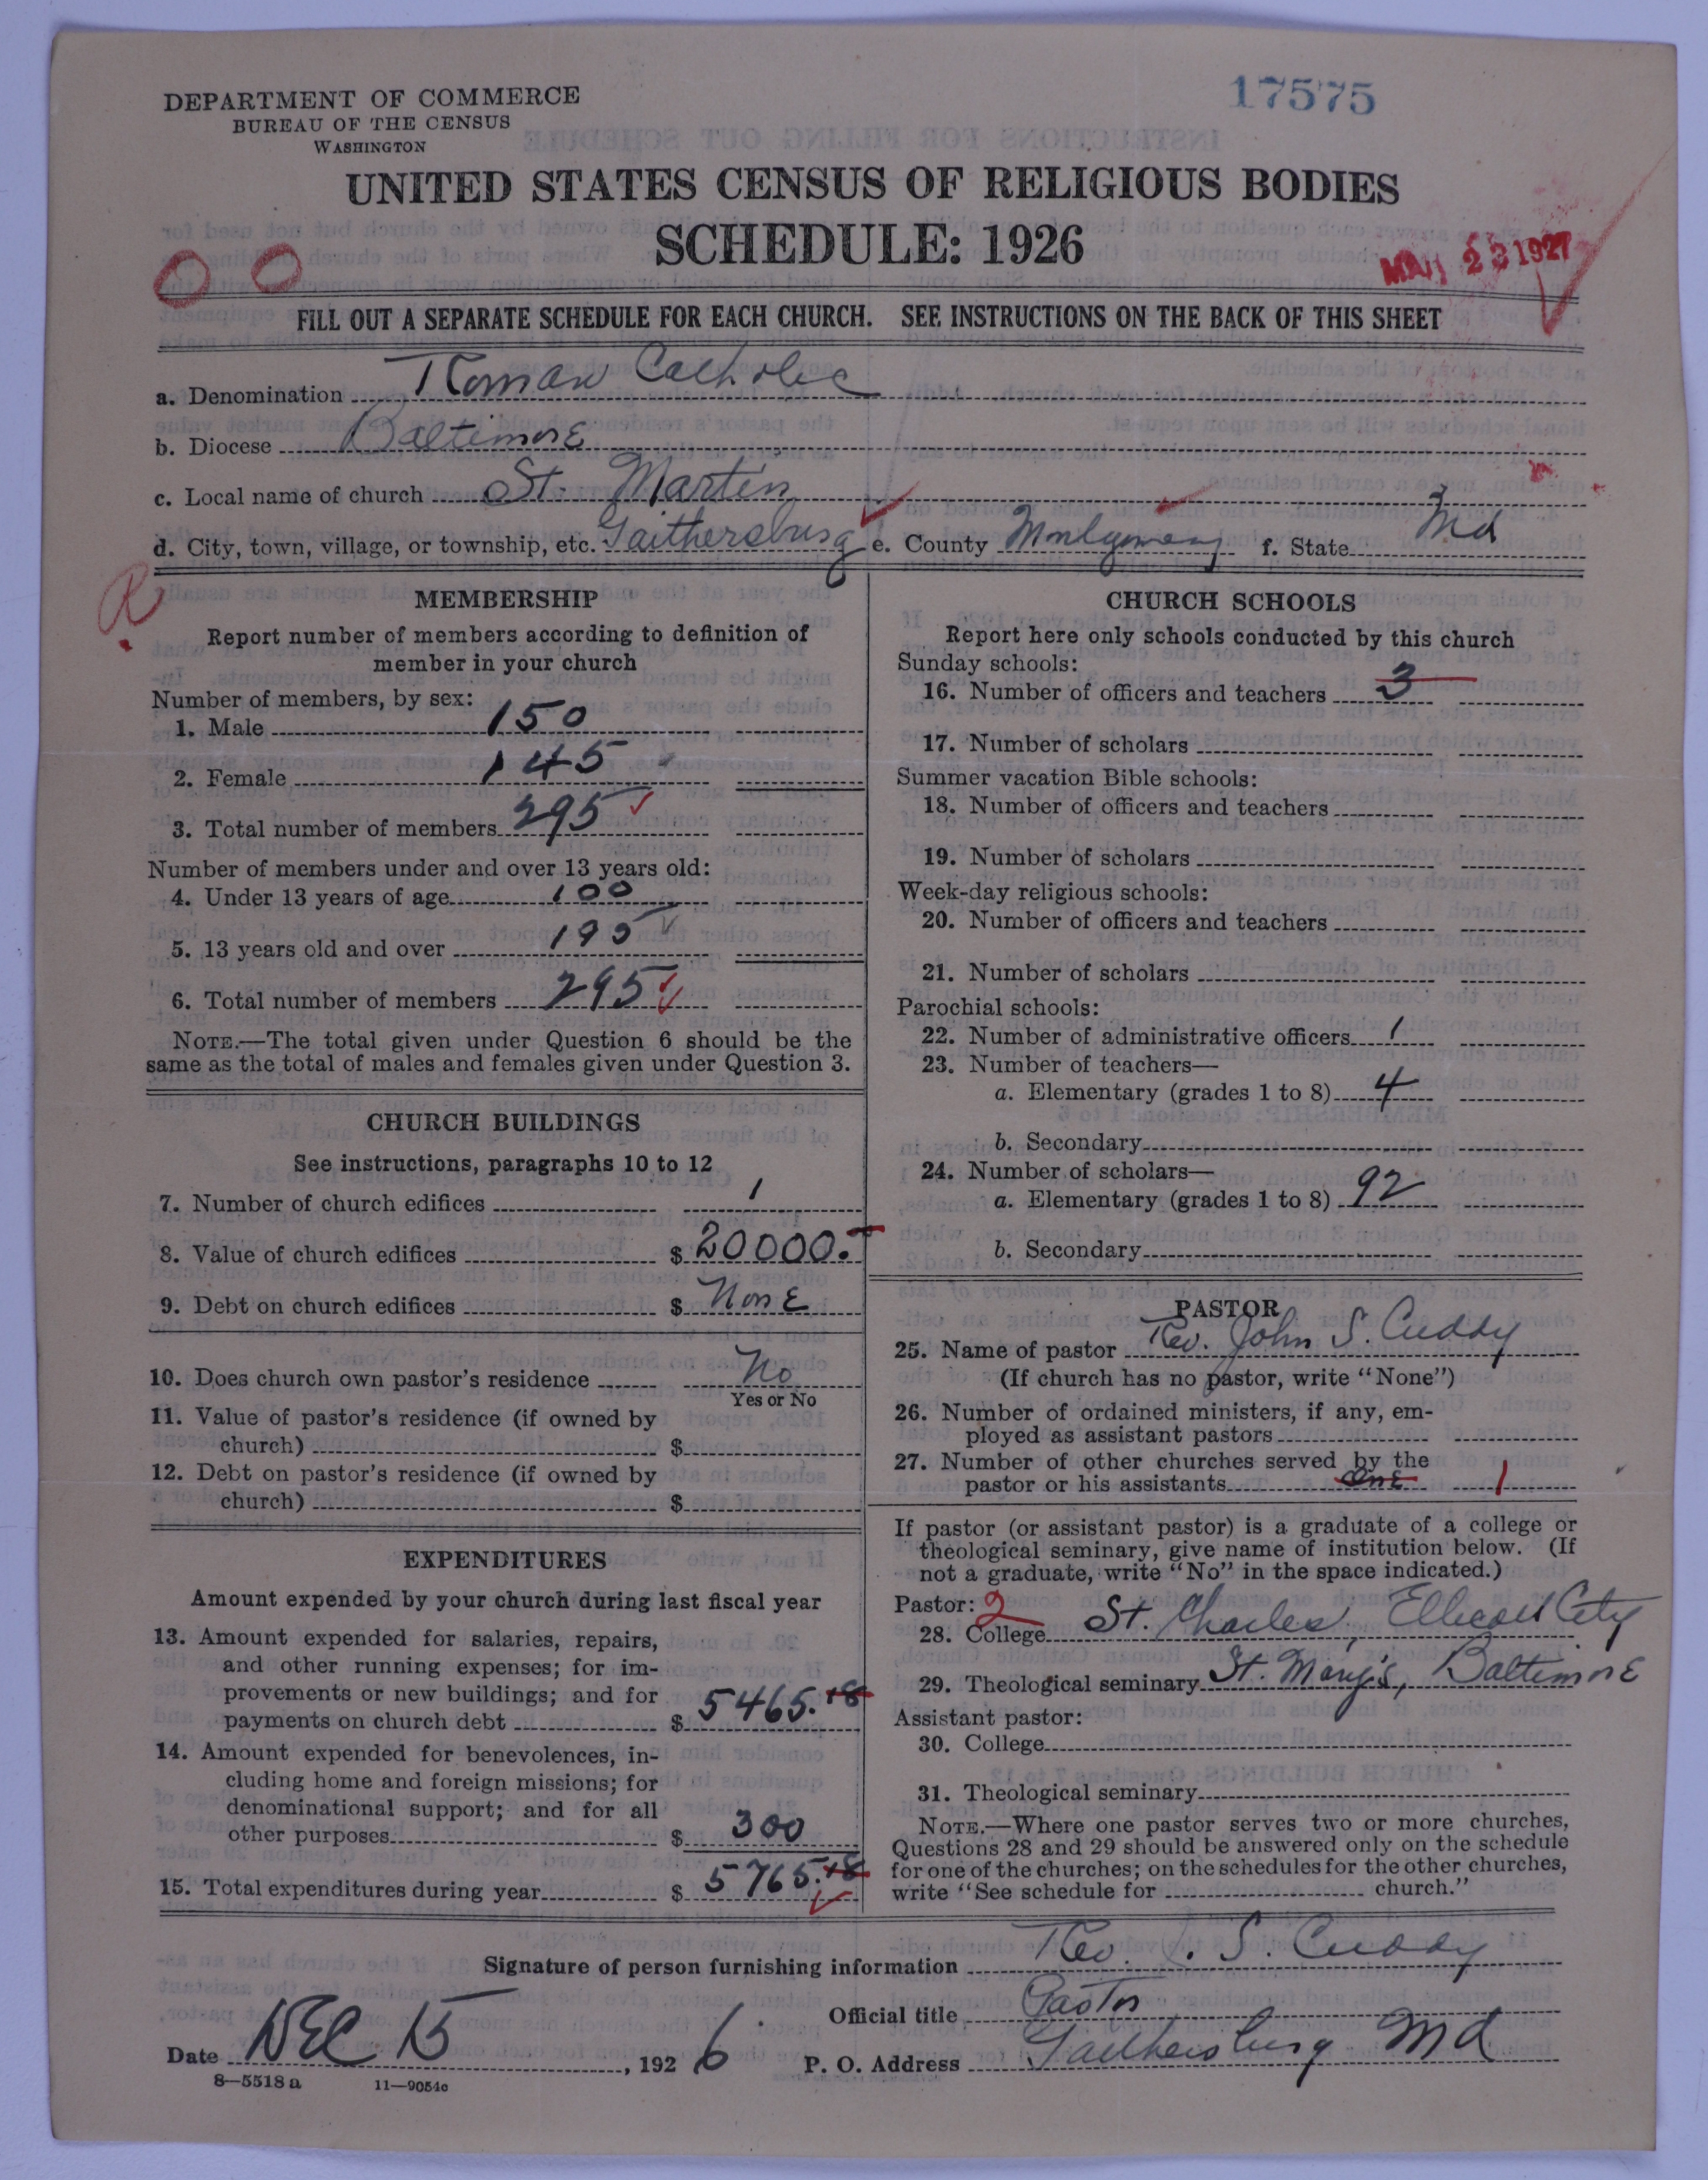 DEPARTMENT OF COMMERCE
BUREAU OF THE CENSUS
WASHINGTON
17575
UNITED STATES CENSUS OF RELIGIOUS BODIES
SCHEDULE: 1926
MAR 23 1927
FILL OUT A SEPARATE SCHEDULE FOR EACH CHURCH. SEE INSTRUCTIONS ON THE BACK OF THIS SHEET
a. Denomination Roman Catholic
b. Diocese Baltimore
c. Local name of church St. Martin
d. City, town, village, or township, etc. Gaithersburg e. County Montgomery f. State Md
MEMBERSHIP
Report number of members according to definition of
member in your church
Number of members, by sex:
1. Male 150
2. Female 145
3. Total number of members 295
Number of members under and over 13 years old:
4. Under 13 years of age 100
5. 13 years old and over 195
6. Total number of members 295
NOTE.—The total given under Question 6 should be the
same as the total of males and females given under Question 3.
CHURCH BUILDINGS
See instructions, paragraphs 10 to 12
7. Number of church edifices 1
8. Value of church edifices $ 20000.
9. Debt on church edifices $ None
10. Does church own pastor's residence No
Yes or No
11. Value of pastor's residence (if owned by
church) $
12. Debt on pastor's residence (if owned by
church) $
EXPENDITURES
Amount expended by your church during last fiscal year
13. Amount expended for salaries, repairs,
and other running expenses; for im-
provements or new buildings; and for
payments on church debt $ 5465.18
14. Amount expended for benevolences, in-
cluding home and foreign missions; for
denominational support; and for all
other purposes $ 300
15. Total expenditures during year $ 5765.18
CHURCH SCHOOLS
Report here only schools conducted by this church
Sunday schools:
16. Number of officers and teachers 3
17. Number of scholars
Summer vacation Bible schools:
18. Number of officers and teachers
19. Number of scholars
Week-day religious schools:
20. Number of officers and teachers
21. Number of scholars
Parochial schools:
22. Number of administrative officers 1
23. Number of teachers—
a. Elementary (grades 1 to 8) 4
b. Secondary
24. Number of scholars—
a. Elementary (grades 1 to 8) 92
b. Secondary
PASTOR
25. Name of pastor Rev. John S. Cuddy
(If church has no pastor, write "None")
26. Number of ordained ministers, if any, em-
ployed as assistant pastors
27. Number of other churches served by the
pastor or his assistants one 1
If pastor (or assistant pastor) is a graduate of a college or
theological seminary, give name of institution below. (If
not a graduate, write "No" in the space indicated.)
Pastor: 2
28. College St. Charles, Ellicott City
29. Theological seminary St. Mary's, Baltimore
Assistant pastor:
30. College
31. Theological seminary
NOTE.—Where one pastor serves two or more churches,
Questions 28 and 29 should be answered only on the schedule
for one of the churches; on the schedules for the other churches,
write "See schedule for church."
Signature of person furnishing information Rev. J. S. Cuddy
Official title Pastor
Date DEC 15, 1926. P. O. Address Gaithersburg Md
8—5518 a 11—9054c